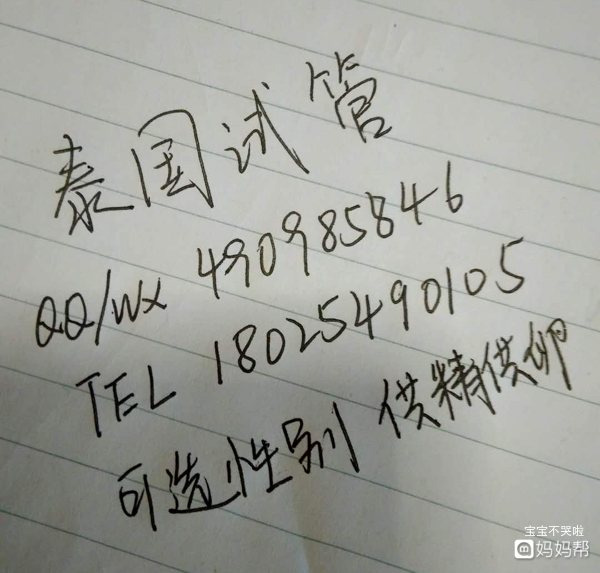 泰国试管
QQ/wx 490985846
TEL 18025490105
可选性别 供精供卵
宝宝不哭啦
妈妈帮